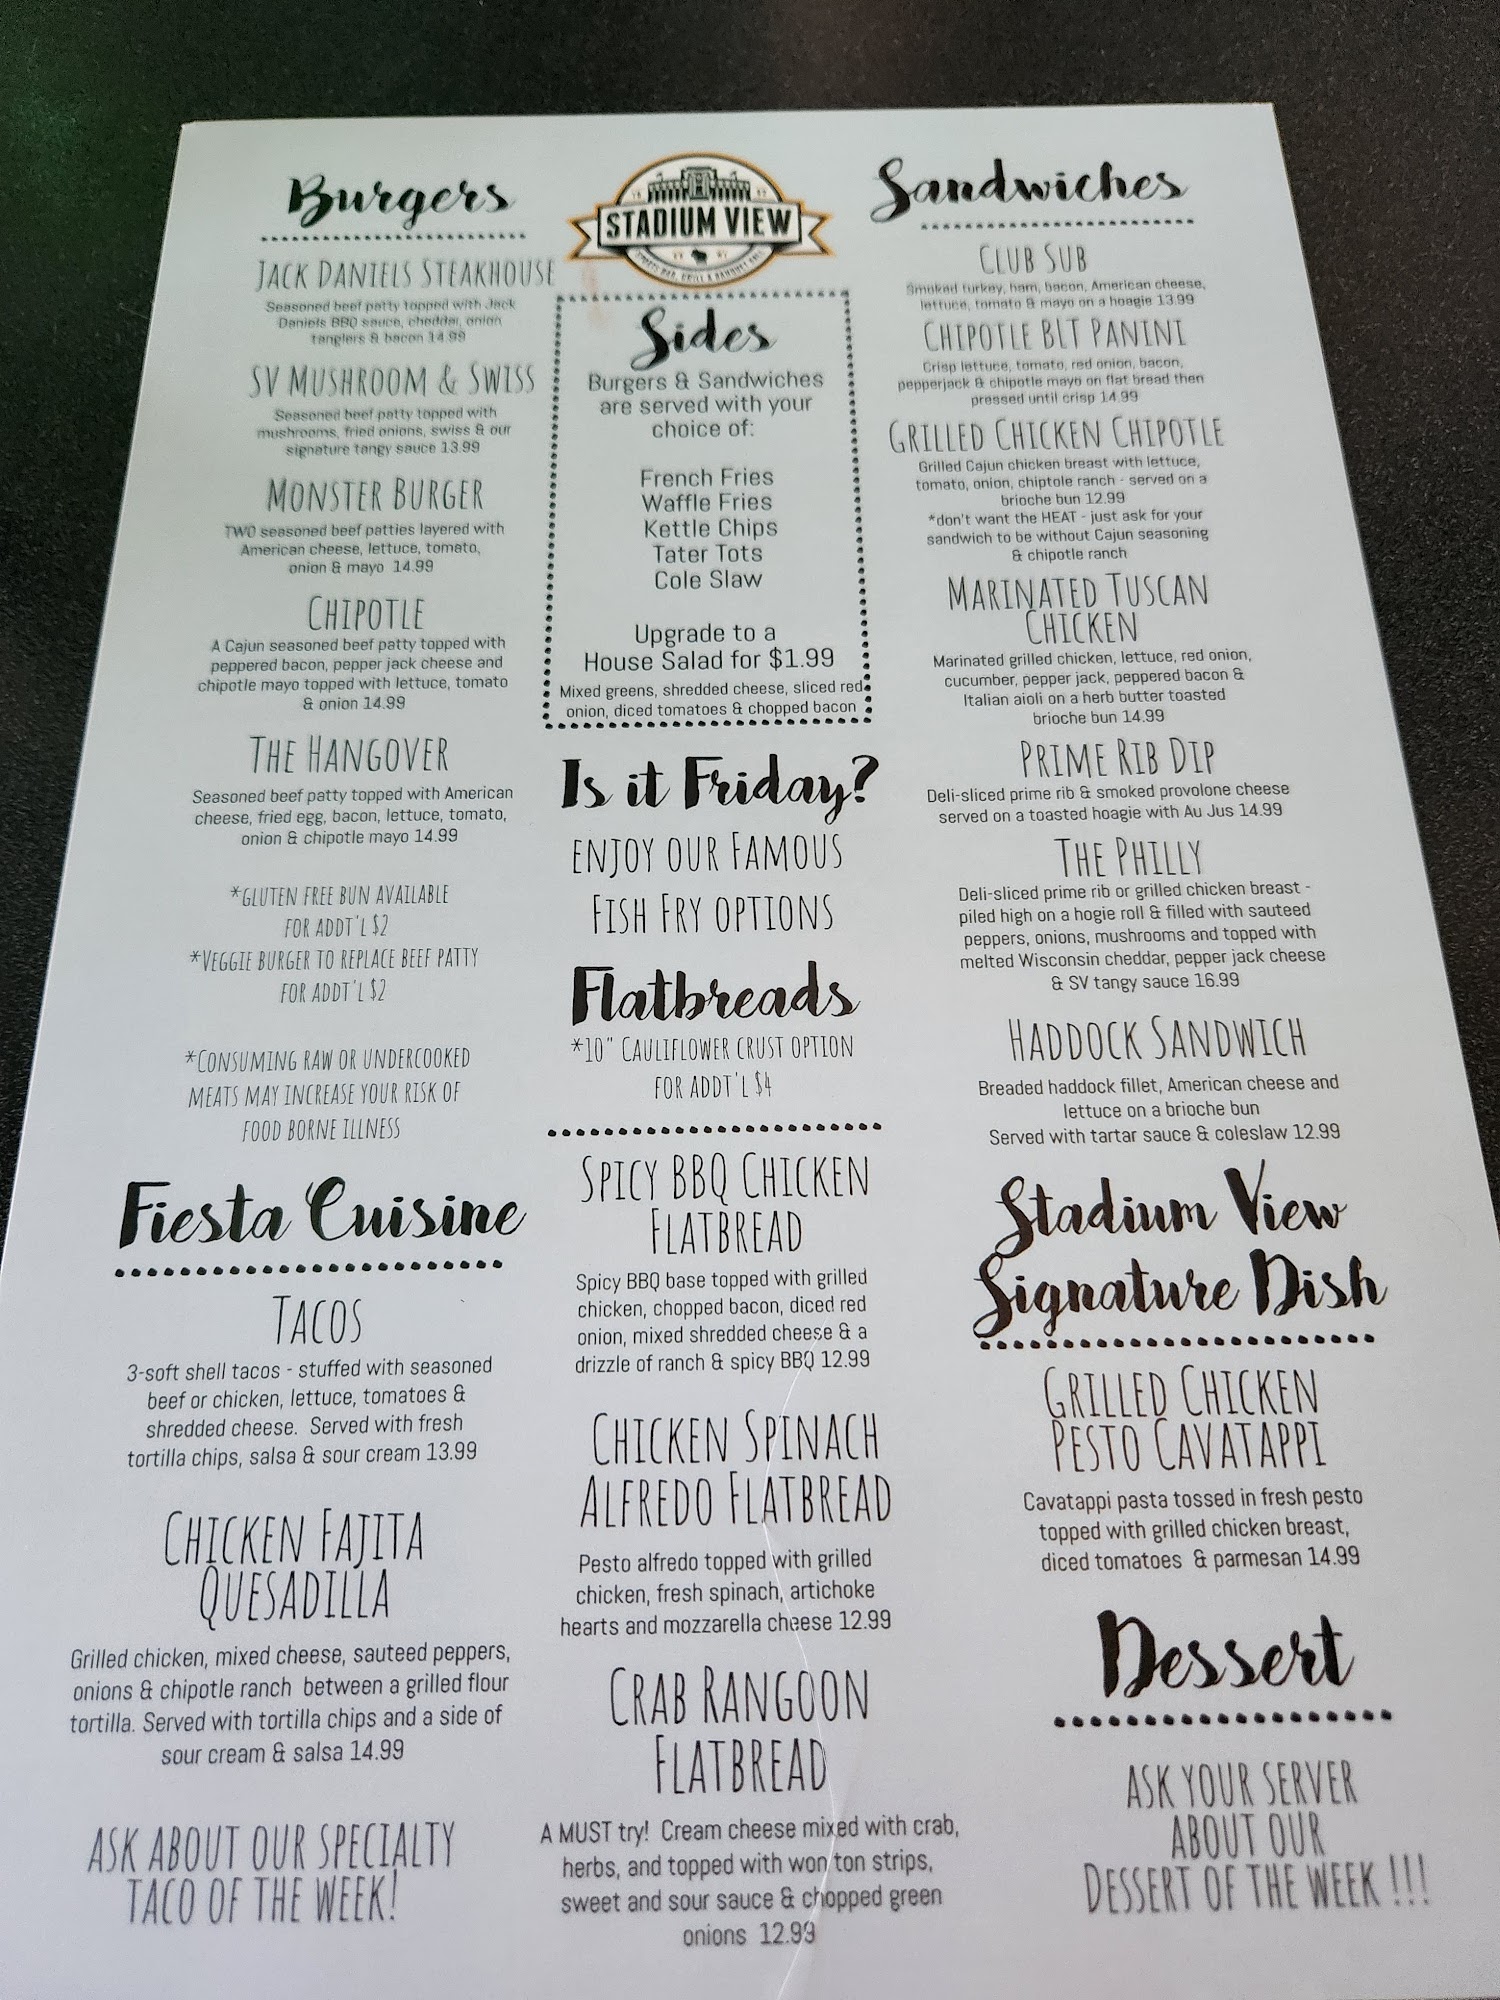 Burgers
JACK DANIELS STEAKHOUSE
Seasoned beef patty topped with Jack
Daniels BBQ sauce, cheddar, onion
tanglers & bacon 14.99
SV MUSHROOM & SWISS
Seasoned beef patty topped with
mushrooms, fried onions, swiss & our
signature tangy sauce 13.99
MONSTER BURGER
TWO seasoned beef patties layered with
American cheese, lettuce, tomato,
onion & mayo 14.99
CHIPOTLE
A Cajun seasoned beef patty topped with
peppered bacon, pepper jack cheese and
chipotle mayo topped with lettuce, tomato
& onion 14.99
THE HANGOVER
Seasoned beef patty topped with American
cheese, fried egg, bacon, lettuce, tomato,
onion & chipotle mayo 14.99
*GLUTEN FREE BUN AVAILABLE
FOR ADDT'L $2
*VEGGIE BURGER TO REPLACE BEEF PATTY
FOR ADDT'L $2
*CONSUMING RAW OR UNDERCOOKED
MEATS MAY INCREASE YOUR RISK OF
FOOD BORNE ILLNESS
Fiesta Cuisine
TACOS
3-soft shell tacos - stuffed with seasoned
beef or chicken, lettuce, tomatoes &
shredded cheese. Served with fresh
tortilla chips, salsa & sour cream 13.99
CHICKEN FAJITA
QUESADILLA
Grilled chicken, mixed cheese, sauteed peppers,
onions & chipotle ranch between a grilled flour
tortilla. Served with tortilla chips and a side of
sour cream & salsa 14.99
ASK ABOUT OUR SPECIALTY
TACO OF THE WEEK!
STADIUM VIEW
SPORTS BAR, GRILL & BANQUET HALL
Sides
Burgers & Sandwiches
are served with your
choice of:
French Fries
Waffle Fries
Kettle Chips
Tater Tots
Cole Slaw
Upgrade to a
House Salad for $1.99
Mixed greens, shredded cheese, sliced red
onion, diced tomatoes & chopped bacon
Is it Friday?
ENJOY OUR FAMOUS
FISH FRY OPTIONS
Flatbreads
*10" CAULIFLOWER CRUST OPTION
FOR ADDT'L $4
SPICY BBQ CHICKEN
FLATBREAD
Spicy BBQ base topped with grilled
chicken, chopped bacon, diced red
onion, mixed shredded cheese & a
drizzle of ranch & spicy BBQ 12.99
CHICKEN SPINACH
ALFREDO FLATBREAD
Pesto alfredo topped with grilled
chicken, fresh spinach, artichoke
hearts and mozzarella cheese 12.99
CRAB RANGOON
FLATBREAD
A MUST try! Cream cheese mixed with crab,
herbs, and topped with won ton strips,
sweet and sour sauce & chopped green
onions 12.99
Sandwiches
CLUB SUB
Smoked turkey, ham, bacon, American cheese,
lettuce, tomato & mayo on a hoagie 13.99
CHIPOTLE BLT PANINI
Crisp lettuce, tomato, red onion, bacon,
pepperjack & chipotle mayo on flat bread then
pressed until crisp 14.99
GRILLED CHICKEN CHIPOTLE
Grilled Cajun chicken breast with lettuce,
tomato, onion, chiptole ranch - served on a
brioche bun 12.99
*don't want the HEAT - just ask for your
sandwich to be without Cajun seasoning
& chipotle ranch
MARINATED TUSCAN
CHICKEN
Marinated grilled chicken, lettuce, red onion,
cucumber, pepper jack, peppered bacon &
Italian aioli on a herb butter toasted
brioche bun 14.99
PRIME RIB DIP
Deli-sliced prime rib & smoked provolone cheese
served on a toasted hoagie with Au Jus 14.99
THE PHILLY
Deli-sliced prime rib or grilled chicken breast -
piled high on a hogie roll & filled with sauteed
peppers, onions, mushrooms and topped with
melted Wisconsin cheddar, pepper jack cheese
& SV tangy sauce 16.99
HADDOCK SANDWICH
Breaded haddock fillet, American cheese and
lettuce on a brioche bun
Served with tartar sauce & coleslaw 12.99
Stadium View
Signature Dish
GRILLED CHICKEN
PESTO CAVATAPPI
Cavatappi pasta tossed in fresh pesto
topped with grilled chicken breast,
diced tomatoes & parmesan 14.99
Dessert
ASK YOUR SERVER
ABOUT OUR
DESSERT OF THE WEEK !!!